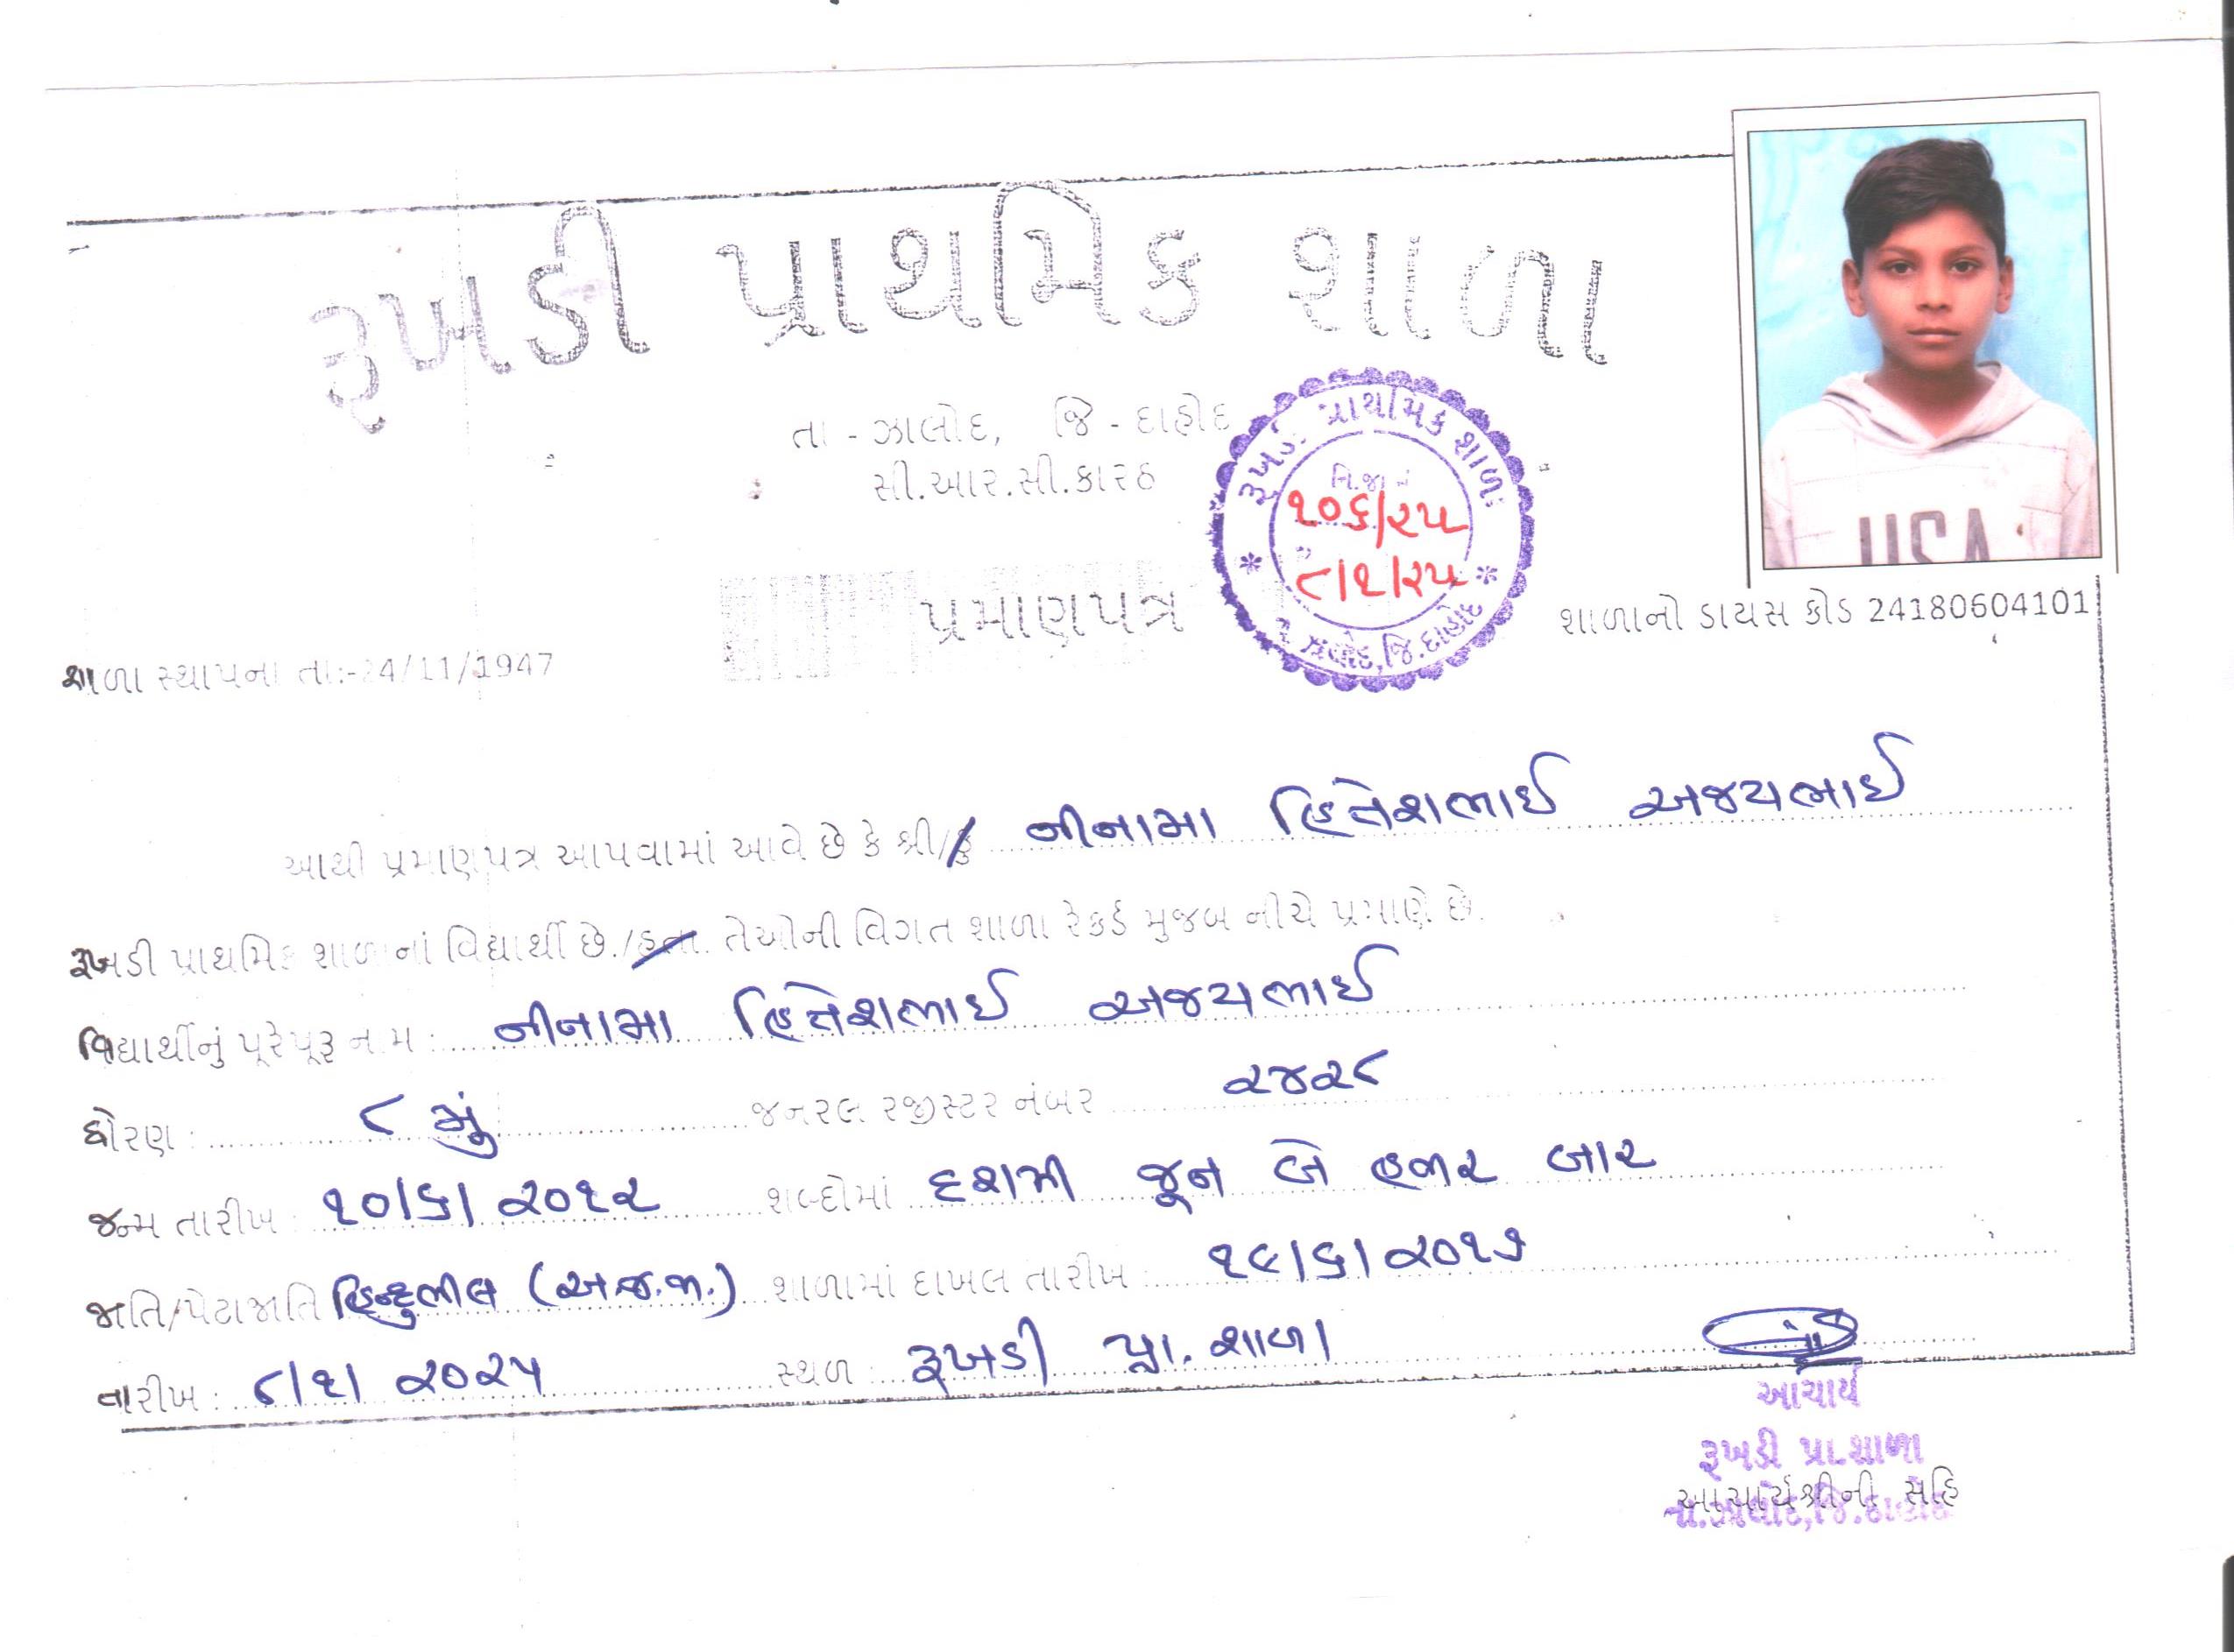 રૂખડી પ્રાથમિક શાળા
તા - ઝાલોદ, જિ - દાહોદ
સી.આર.સી.કારઠ
રૂખડી પ્રાથમિક શાળા
નિ.જા.નં
૧૦૬/૨૫
૮/૧/૨૫
ઝાલોદ,જિ.દાહોદ
USA
પ્રમાણપત્ર
શાળાનો ડાયસ કોડ 24180604101
શાળા સ્થાપના તા:-24/11/1947
આથી પ્રમાણપત્ર આપવામાં આવે છે કે શ્રી/કુ નીનામા હિતેશભાઈ અજયભાઈ
રૂખડી પ્રાથમિક શાળાનાં વિદ્યાર્થી છે./હતા. તેઓની વિગત શાળા રેકર્ડ મુજબ નીચે પ્રમાણે છે.
વિદ્યાર્થીનું પૂરેપૂરૂ નામ : નીનામા હિતેશભાઈ અજયભાઈ
ધોરણ : ૮ મું જનરલ રજીસ્ટર નંબર ૨૪૨૮
જન્મ તારીખ : ૧૦/૬/૨૦૧૨ શબ્દોમાં દશમી જૂન બે હજાર બાર
જાતિ/પેટાજાતિ હિન્દુભીલ (અ.જ.જા.) શાળામાં દાખલ તારીખ : ૧૯/૬/૨૦૧૭
તારીખ : ૮/૧/૨૦૨૫ સ્થળ : રૂખડી પ્રા.શાળા
આચાર્ય
રૂખડી પ્રા.શાળા
આચાર્યશ્રીની સહિ
તા.ઝાલોદ,જિ.દાહોદ